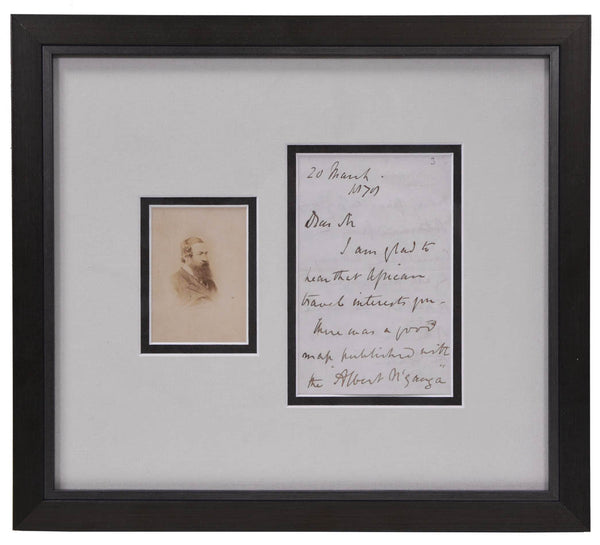 3
20 March.
Dear Sir
I am glad to
hear that African
travels interests you -
There was a good
map published with
the "Albert N'yanza"